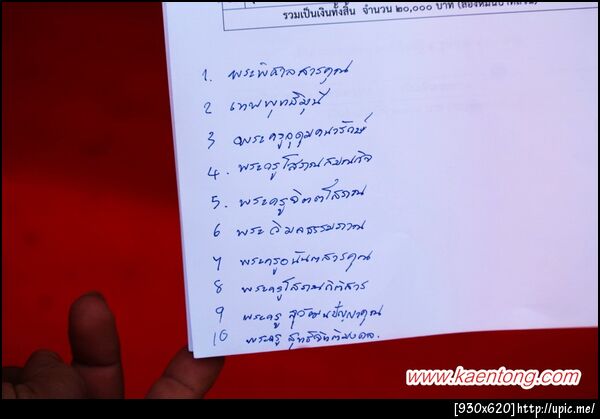 รวมเป็นเงินทั้งสิ้น จำนวน ๒๐,๐๐๐ บาท (สองหมื่นบาทถ้วน)
1. พระพิศาลสารคุณ
2 เทพพุทธิมุนี
3 พระครูอุดุมคณารักษ์
4. พระครูโสภณสมณกิจ
5. พระครูจิตตโสภณ
6 พระวิมลธรรมภาณ
7 พระครูอนันตสารคุณ
8 พระครูโสภณกิติสาร
9 พระครูสุวัฒนปัญญาคุณ
10 พระครูสุทธิจิตติมงคล.
www.kaentong.com
[930x620]http://upic.me/